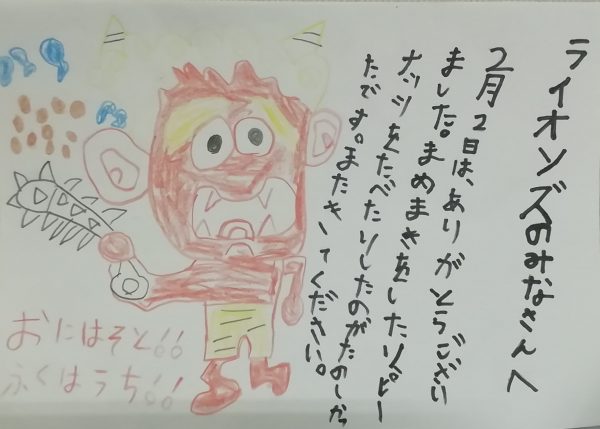 ライオンズのみなさんへ
2月2日は、ありがとうござい
ました。まめまきをしたり、ピー
ナッツをたべたりしたのがたのしかっ
たです。またきてください。
おにはそと!!
ふくはうち!!